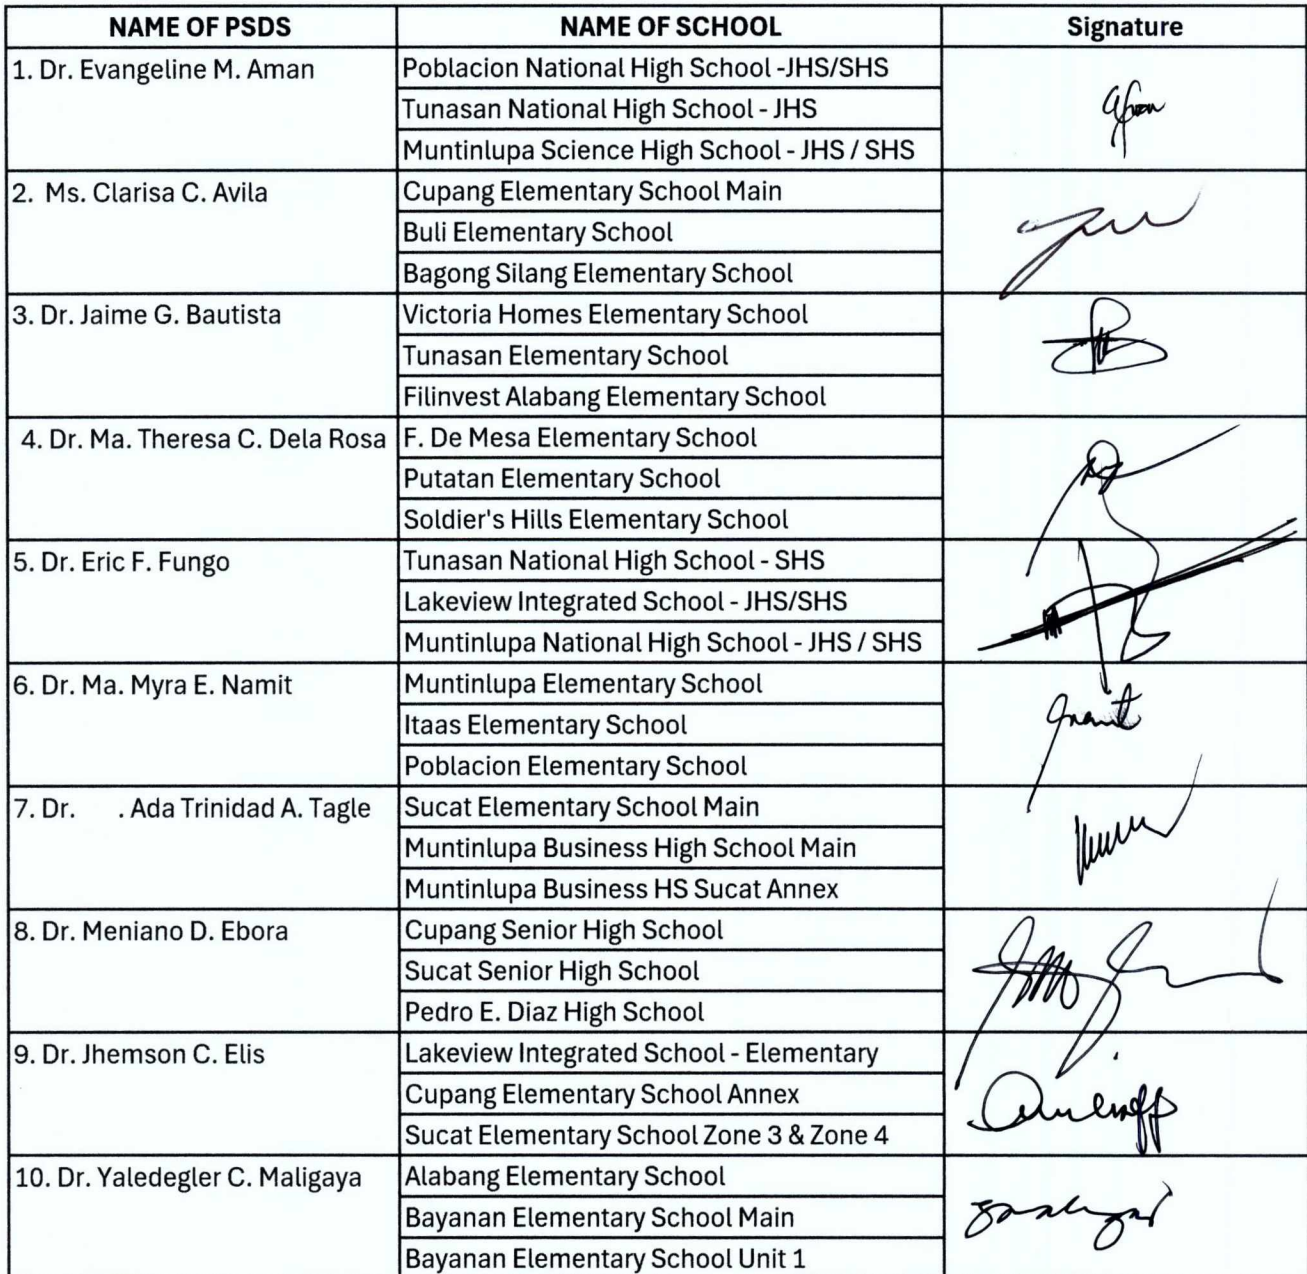 NAME OF PSDS NAME OF SCHOOL Signature
1. Dr. Evangeline M. Aman Poblacion National High School -JHS/SHS
Tunasan National High School - JHS
Muntinlupa Science High School - JHS / SHS
2. Ms. Clarisa C. Avila Cupang Elementary School Main
Buli Elementary School
Bagong Silang Elementary School
3. Dr. Jaime G. Bautista Victoria Homes Elementary School
Tunasan Elementary School
Filinvest Alabang Elementary School
4. Dr. Ma. Theresa C. Dela Rosa F. De Mesa Elementary School
Putatan Elementary School
Soldier's Hills Elementary School
5. Dr. Eric F. Fungo Tunasan National High School - SHS
Lakeview Integrated School - JHS/SHS
Muntinlupa National High School - JHS / SHS
6. Dr. Ma. Myra E. Namit Muntinlupa Elementary School
Itaas Elementary School
Poblacion Elementary School
7. Dr. . Ada Trinidad A. Tagle Sucat Elementary School Main
Muntinlupa Business High School Main
Muntinlupa Business HS Sucat Annex
8. Dr. Meniano D. Ebora Cupang Senior High School
Sucat Senior High School
Pedro E. Diaz High School
9. Dr. Jhemson C. Elis Lakeview Integrated School - Elementary
Cupang Elementary School Annex
Sucat Elementary School Zone 3 & Zone 4
10. Dr. Yaledegler C. Maligaya Alabang Elementary School
Bayanan Elementary School Main
Bayanan Elementary School Unit 1